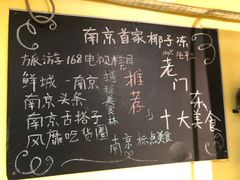 南京首家椰子冻
旅游168电视栏目
鲜城-南京
南京头条
南京吉搭子
风靡吃货圈
携程美食林
推荐
南京标点美食
老门东
十大美食